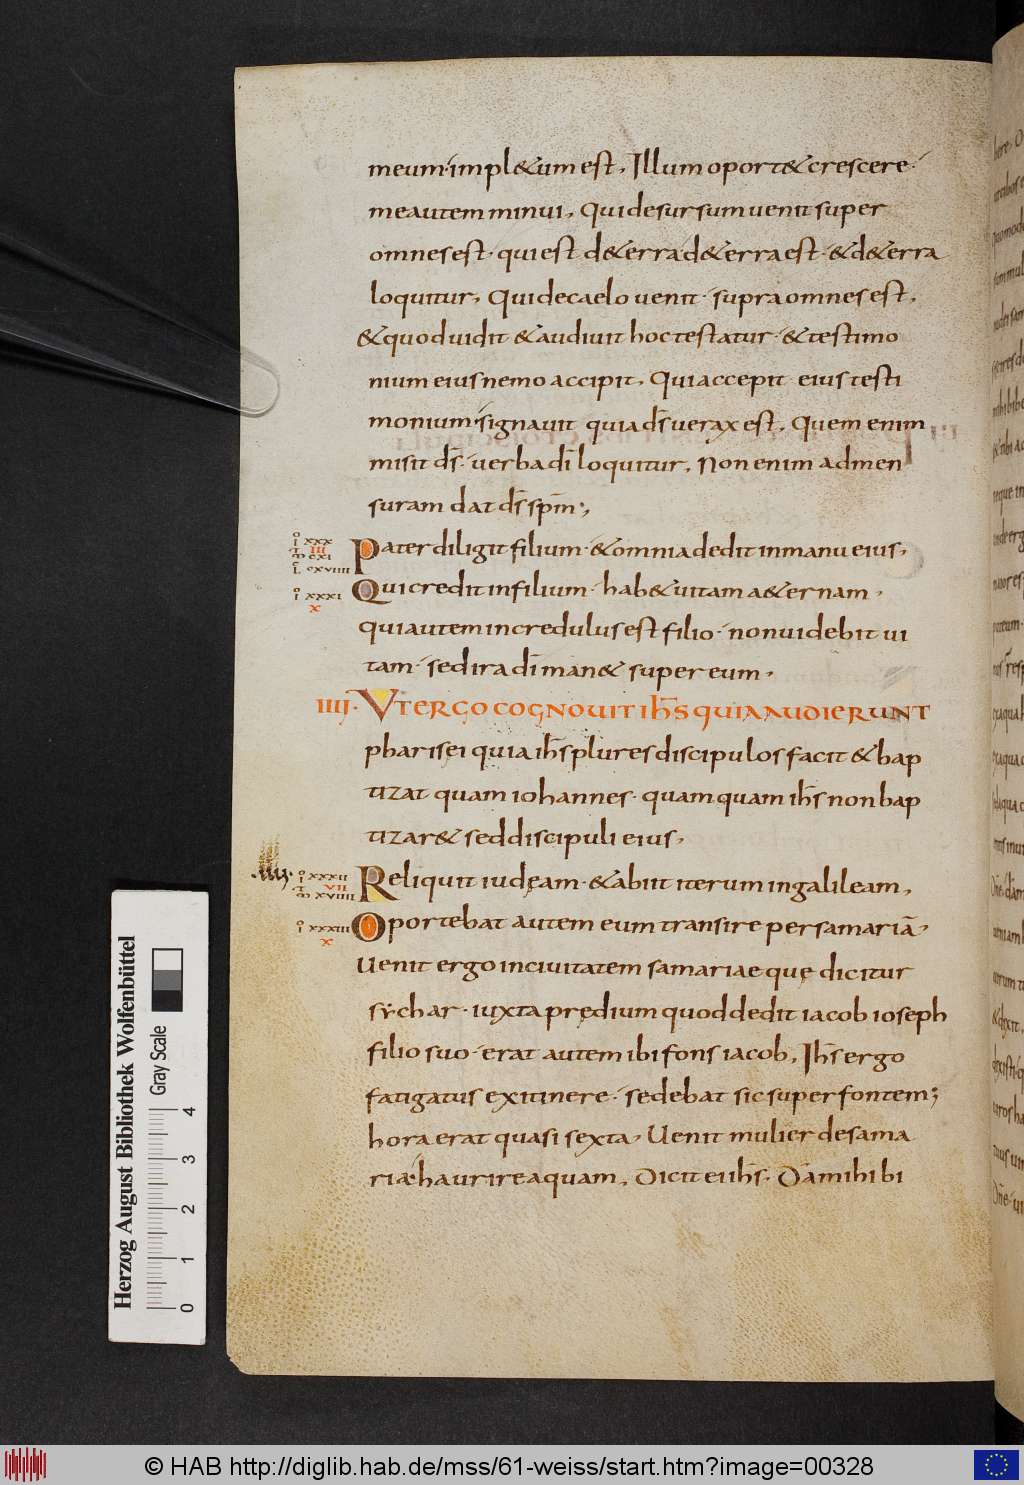 meum· impl&um est, Illum oport& crescere·
me autem minui, Qui desursum uenit super
omnes est· qui est d&erra d&erra est· & d&erra
loquitur, Qui de caelo uenit· supra omnes est,
& quod uidit & audiuit hoc testatur· & testimo
nium eius nemo accipit, Qui accepit eius testi
monium· signauit quia d̄s uerax est, Quem enim
misit d̄s· uerba dī loquitur, Non enim ad men
suram dat d̄s sp̄m;,
IO XXX
III
MT CXI
L CXVIIII
Pater diligit filium· & omnia dedit in manu eius,
IO XXXI
X
Qui credit in filium· hab& uitam a&ernam,
qui autem incredulus est filio· non uidebit ui
tam· sed ira dī man& super eum,
IIII· UT ERGO COGNOUIT IH̄S QUIA AUDIERUNT
pharisęi quia ih̄s plures discipulos facit & bap
tizat quam iohannes· quamquam ih̄s non bap
tizar& sed discipuli eius,
IO XXXII
VII
MT XVIIII
Reliquit iudęam· & abiit iterum in galileam,
IO XXXIII
X
Oportebat autem eum transire per samariā,
Uenit ergo in ciuitatem samariae quę dicitur
sẏchar· iuxta prędium quod dedit iacob ioseph
filio suo· erat autem ibi fons iacob, Ih̄s ergo
fatigatus ex itinere· sedebat sic super fontem;
hora erat quasi sexta, Uenit mulier de sama
ria· haurire aquam, Dicit ei ih̄s· Da mihi bi
Herzog August Bibliothek Wolfenbüttel
Gray Scale
0 1 2 3 4
© HAB http://diglib.hab.de/mss/61-weiss/start.htm?image=00328